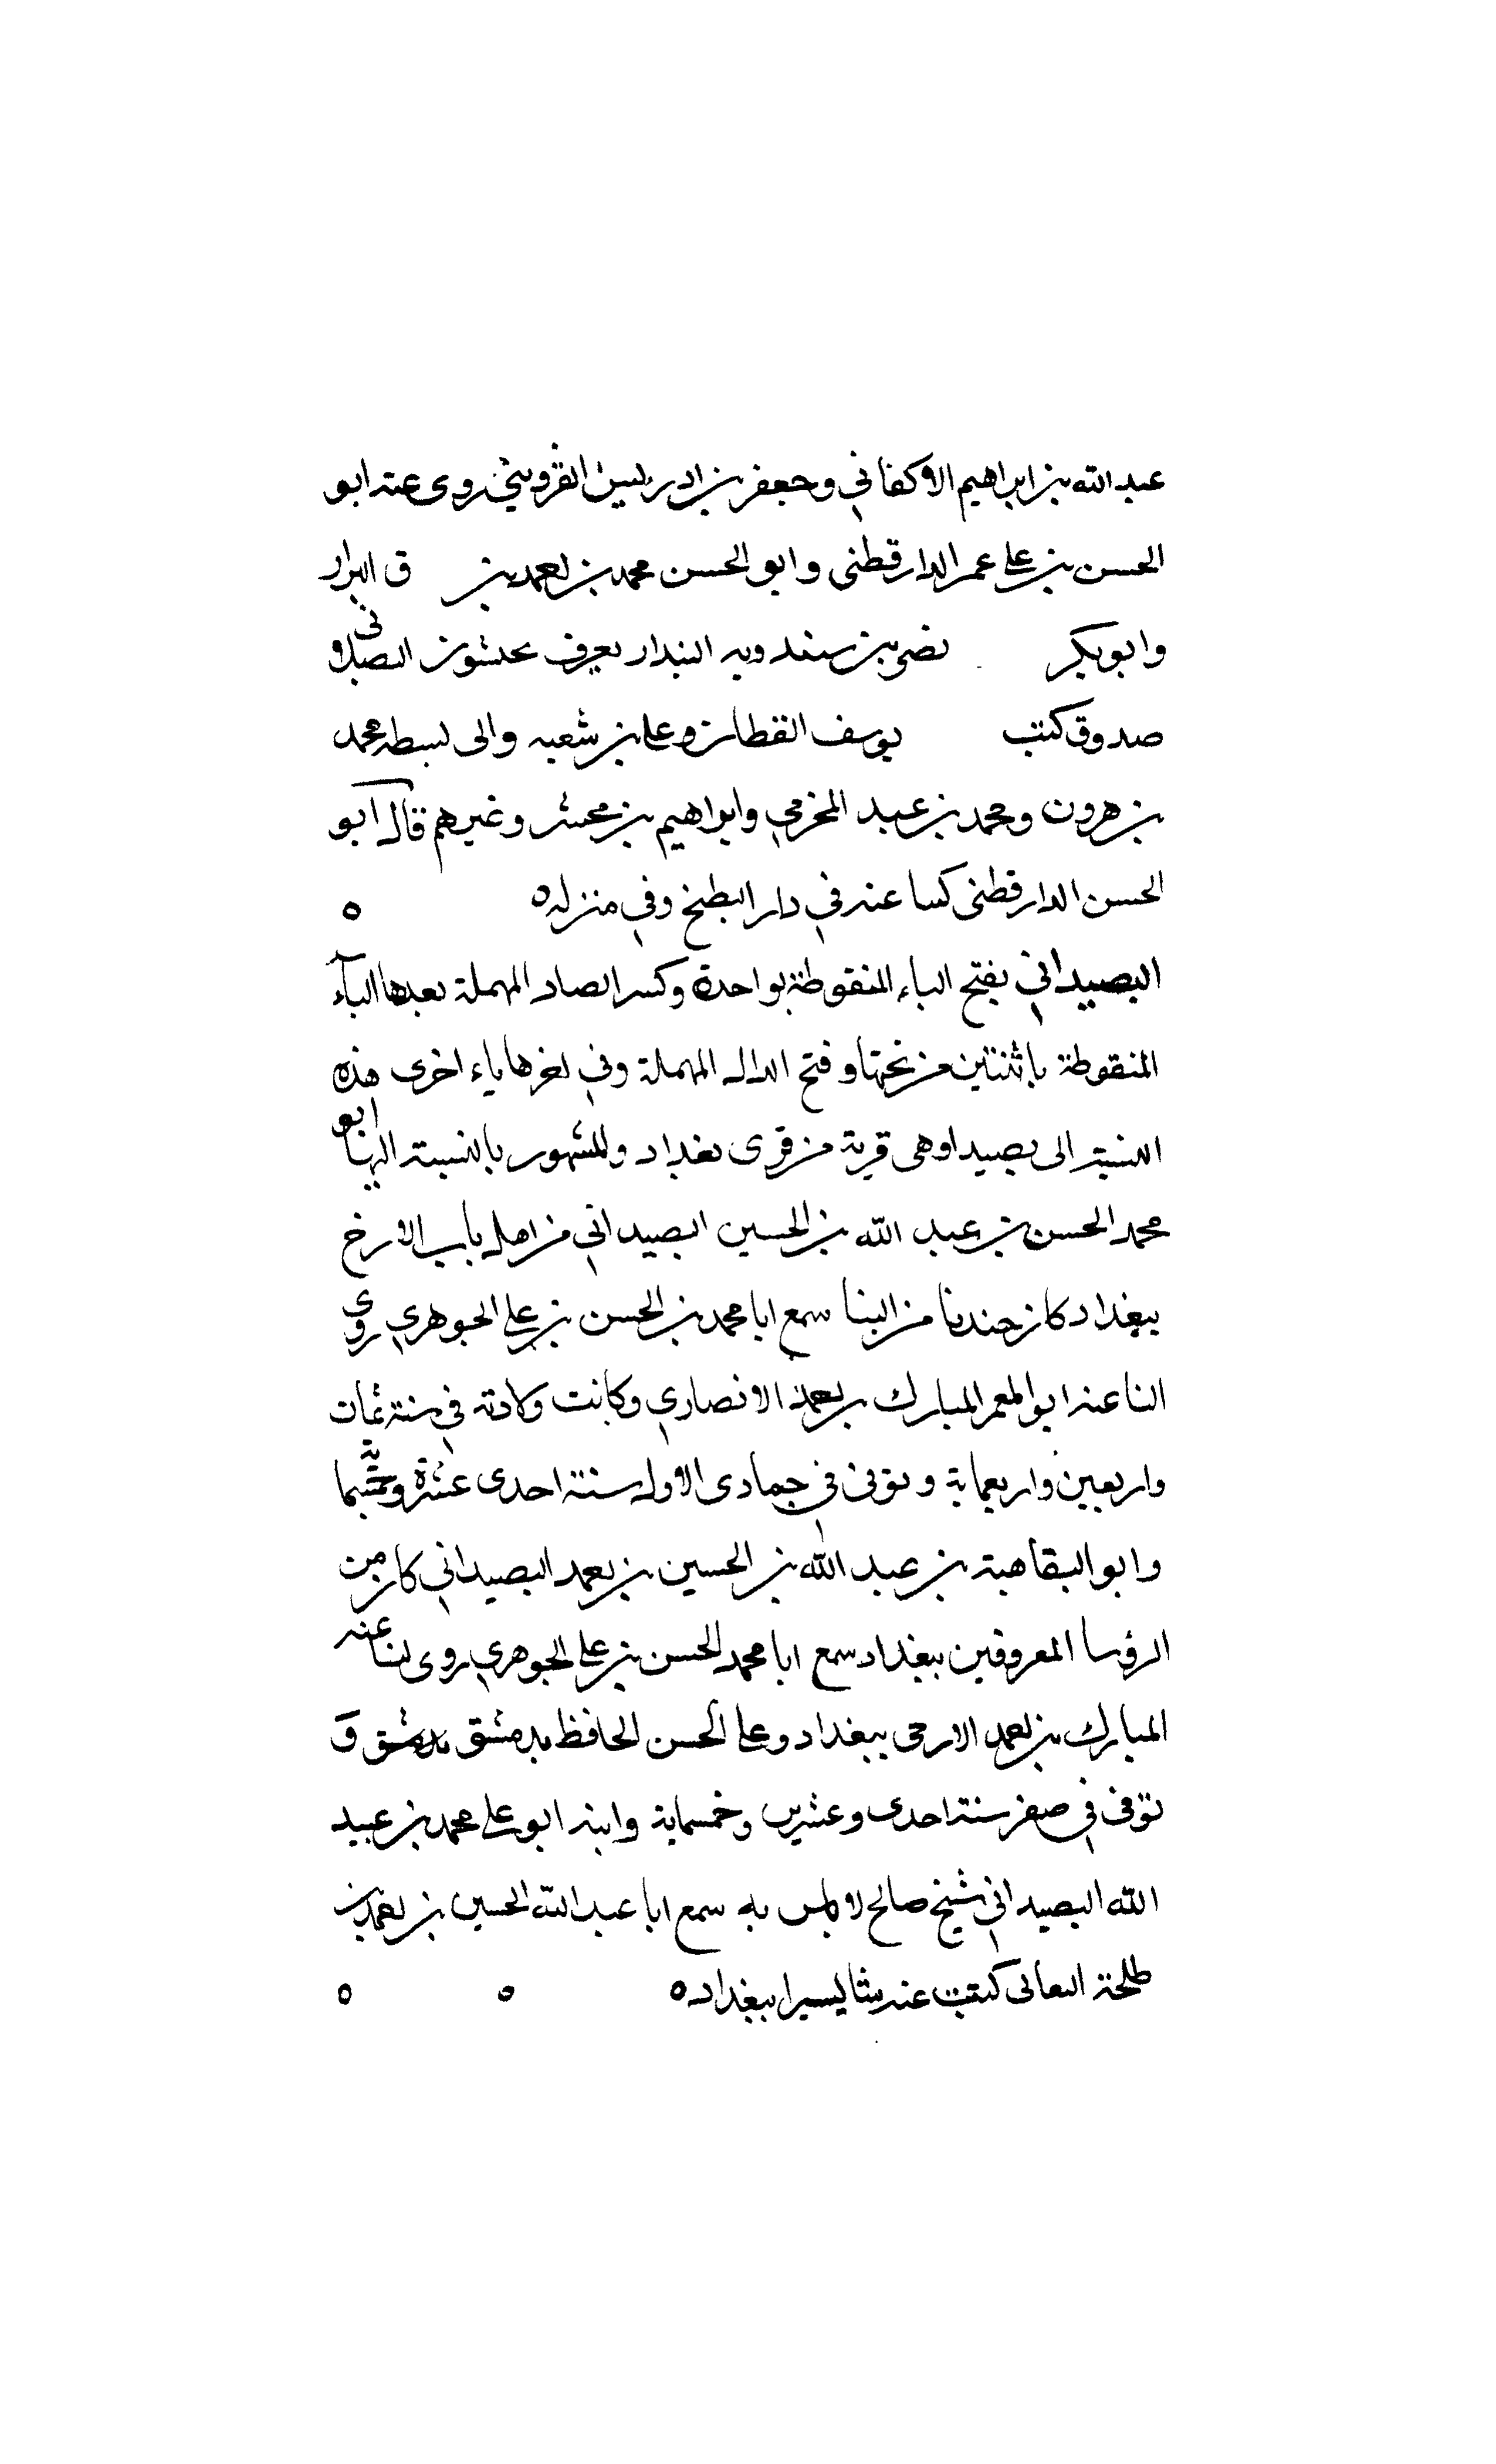 عبد الله بن ابراهيم الاكفاني وجعفر بن ادريس القزويني روى عنه ابو
الحسن بن على عمر الدارقطنى وابو الحسن محمد بن احمد بن ق البزار
وابو بكر بن سندويه البندار يعرف بحبشون الصيدلاني
صدوق كتب يوسف القطان وعلى بن شعيب والى بسطه محمد
بن هرون ومحمد بن عبد المخرمي وابراهيم بن محشر وغيرهم قال ابو
الحسن الدارقطنى كتبنا عنه في دار البطيخ وفي منزله ه ه
البصيداني بفتح الباء المنقوطة بواحدة وكسر الصاد المهملة بعدها الياء
المنقوطة باثنتين من تحتها وفتح الدال المهملة وفي اخرها ياء اخرى هذه
النسبة الى بصيدا وهى قرية من قرى بغداد والمشهور بالنسبة اليها ابو
محمد الحسن بن عبد الله بن الحسين البصيداني من اهل باب الازج
ببغداد كان جندنا من البنا سمع ابا محمد بن الحسن بن على الجوهري روى
لنا عنه ابو المعمر المبارك بن احمد الانصاري وكانت ولادته في سنة ثمان
واربعين واربعماية وتوفى في جمادى الاولى سنة احدى عشرة وخمسماية
وابو البقا هبة بن عبد الله بن الحسين بن احمد البصيداني كان من
الرؤسا المعروفين ببغداد سمع ابا محمد الحسن بن على الجوهري روى لنا عنه
المبارك بن احمد الازجى ببغداد وعلى الحسن الحافظ بدمشق بدمشق و
توفى في صفر سنة احدى وعشرين وخمسماية وابنه ابو على محمد بن عبيد
الله البصيداني شيخ صالح لا باس به سمع ابا عبد الله الحسين بن احمد بن
طلحة النعالى كتبت عنه شيا يسيرا ببغداد ه ه ه